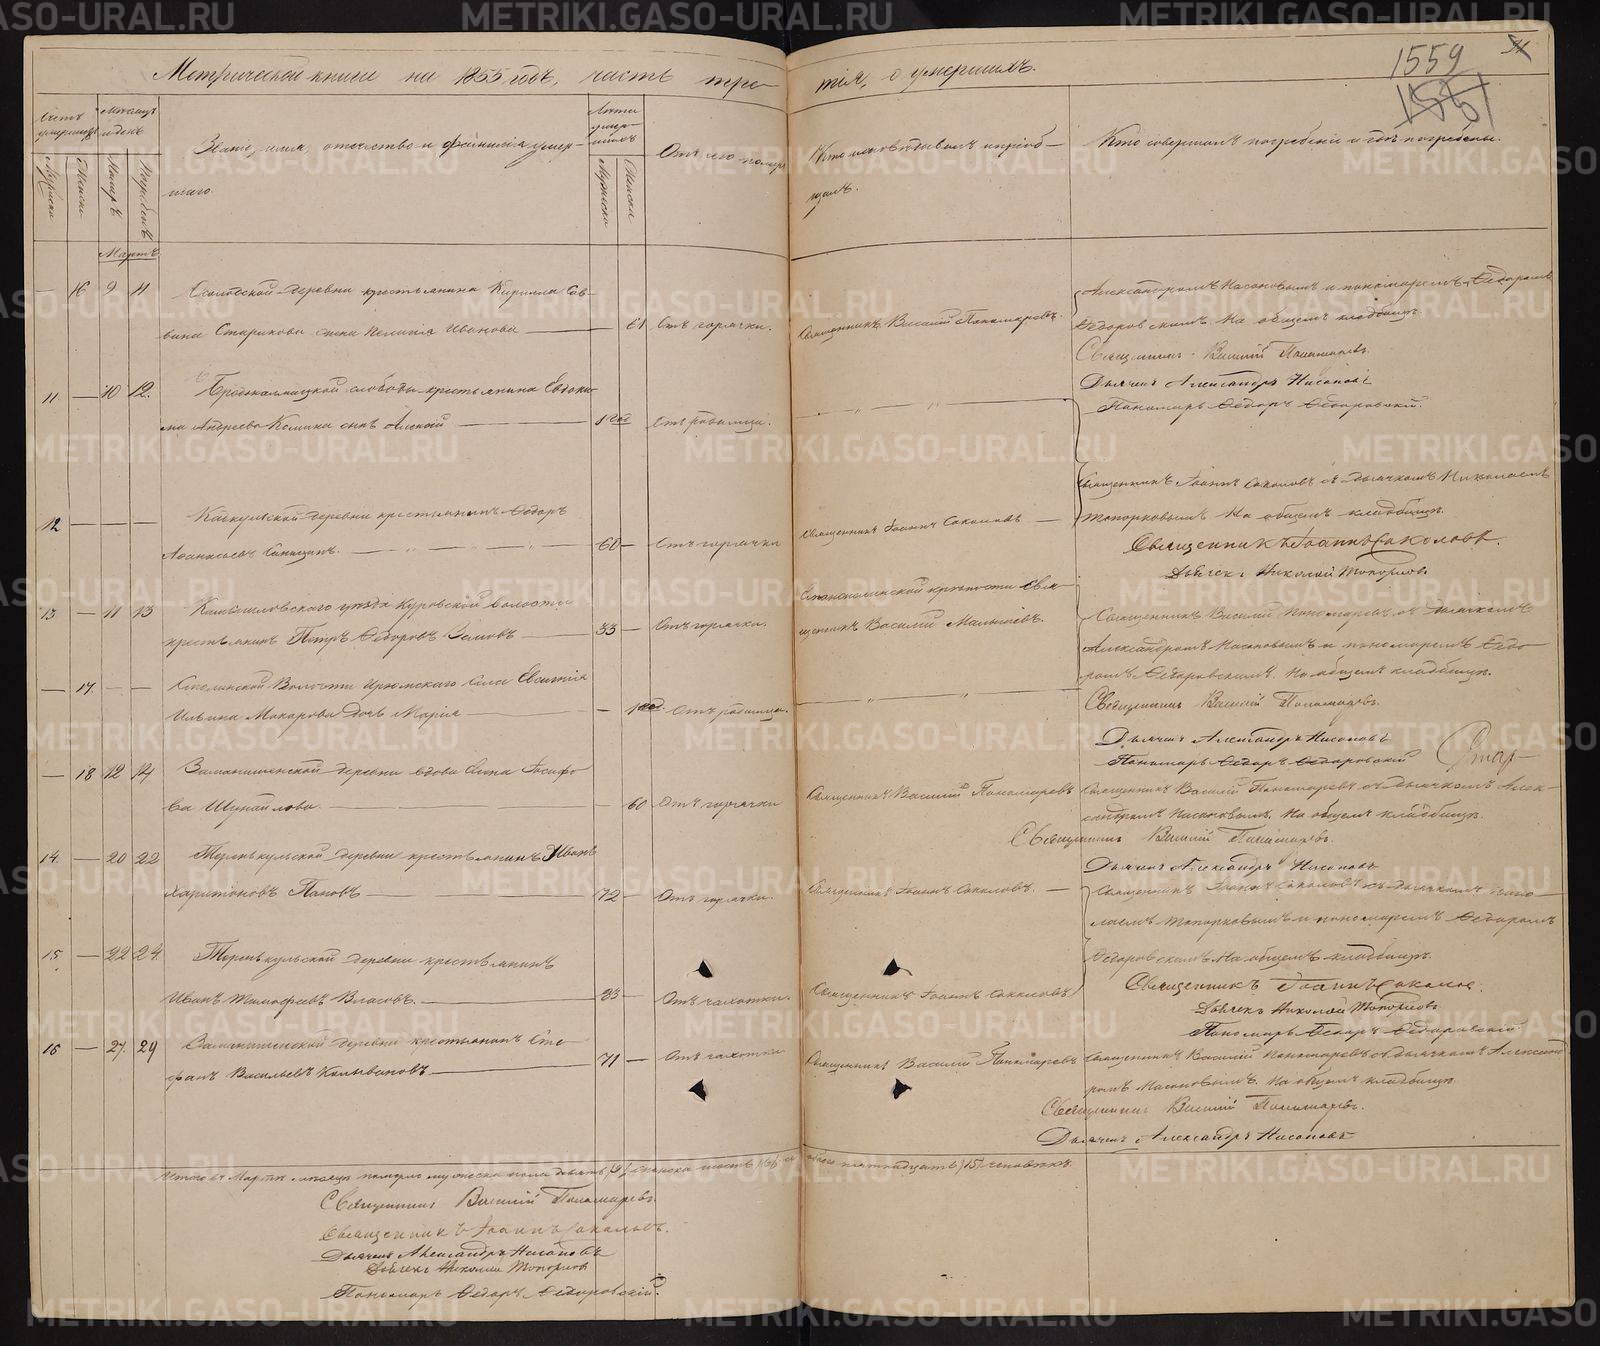 METRIKI.GASO-URAL.RU
Метрической книги на 1855 годъ, часть третія, о умершихъ.
1559
Счетъ умершихъ
Мѣсяцъ и день
Званіе, имя, отчество и фамилія умершаго.
Лѣта умершихъ
Отъ чего померъ
Кто исповѣдывалъ и пріобщалъ.
Кто совершалъ погребеніе и гдѣ погребены.
Мужска
Женска
Померъ
Погребенъ
Мужска
Женска
Мартъ
— 16 9 11
деревни крестьянина Кирилла Саввина Старикова жена Пелагія Иванова — 61
Отъ горячки.
Священникъ Василій Пономаревъ.
Александромъ Насоновымъ и пономаремъ Ѳедоромъ
Ѳедоровскимъ. На общемъ кладбищѣ.
Священникъ Василій Пономаревъ.
Дьячекъ Александръ Насоновъ
Пономарь Ѳедоръ Ѳедоровскій.
11 — 10 12.
Бродокалмацкой слободы крестьянина Евдокима Андреева сынъ Алексѣй — 1 год
Отъ родимца.
12 — — —
деревни крестьянинъ Ѳедоръ
Аѳанасьевъ Синицинъ. — 60 —
Отъ горячки
Священникъ Іоаннъ Соколовъ —
Священникъ Іоаннъ Соколовъ съ дьячкомъ Николаемъ
Топорковымъ. На общемъ кладбищѣ.
Священникъ Іоаннъ Соколовъ.
Дьячекъ Николай Топорковъ
13 — 11 13
Камышловскаго уѣзда Куровской волости
крестьянинъ Петръ Ѳедоровъ — 33 —
Отъ горячки.
крѣпости Священникъ Василій Малышевъ.
Священникъ Василій Пономаревъ съ дьячкомъ
Александромъ Насоновымъ и пономаремъ Ѳедоромъ Ѳедоровскимъ. На общемъ кладбищѣ.
Священникъ Василій Пономаревъ.
Дьячекъ Александръ Насоновъ
Пономарь Ѳедоръ Ѳедоровскій
— 17. — —
Волости села Евсигнія
Ильина Макарова дочь Марія — 1 год.
Отъ родимца.
— 18 12 14
деревни вдова Анна Іосифова — 60
Отъ горячки
Священникъ Василій Пономаревъ
Священникъ Василій Пономаревъ съ дьячкомъ Александромъ Насоновымъ. На общемъ кладбищѣ.
Священникъ Василій Пономаревъ.
Дьячекъ Александръ Насоновъ
14. — 20 22
Теренькульской деревни крестьянинъ Иванъ
Харитоновъ Пановъ — 72 —
Отъ горячки.
Священникъ Іоаннъ Соколовъ. —
Священникъ Іоаннъ Соколовъ съ дьячкомъ Николаемъ Топорковымъ и пономаремъ Ѳедоромъ
Ѳедоровскимъ. На общемъ кладбищѣ.
15. — 22 24.
Теренькульской деревни крестьянинъ
Иванъ Тимофеевъ Власовъ. — 23 —
Отъ чахотки.
Священникъ Іоаннъ Соколовъ
Священникъ Іоаннъ Соколовъ.
Дьячекъ Николай Топорковъ
Пономарь Ѳедоръ Ѳедоровскій
16 — 27. 29
деревни крестьянинъ Стефанъ Васильевъ Колывановъ — 71 —
Отъ чахотки
Священникъ Василій Пономаревъ
Священникъ Василій Пономаревъ съ дьячкомъ Александромъ Насоновымъ. На общемъ кладбищѣ.
Священникъ Василій Пономаревъ.
Дьячекъ Александръ Насоновъ
Итого въ Мартѣ мѣсяцѣ померло мужеска пола девять /9/, женска шесть /6/ а обоего пятнадцать /15/ человѣкъ.
Священникъ Василій Пономаревъ.
Священникъ Іоаннъ Соколовъ.
Дьячекъ Александръ Насоновъ
Дьячекъ Николай Топорковъ
Пономарь Ѳедоръ Ѳедоровскій.